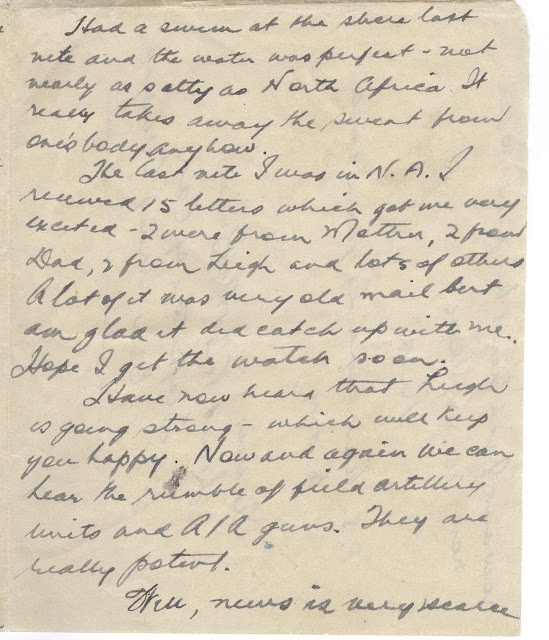 Had a swim at the shore last
nite and the water was perfect - not
nearly as salty as North Africa. It
really takes away the sweat from
one's body anyhow.
The last nite I was in N.A. I
received 15 letters which got me very
excited - 2 were from Mother, 2 from
Dad, 2 from Leigh and lots of others
A lot of it was very old mail but
am glad it did catch up with me.
Hope I get the watch soon.
Have now heard that Leigh
is going strong - which will keep
you happy. Now and again we can
hear the rumble of field artillery
units and A/A guns. They are
really potent.
Well, news is very scarce